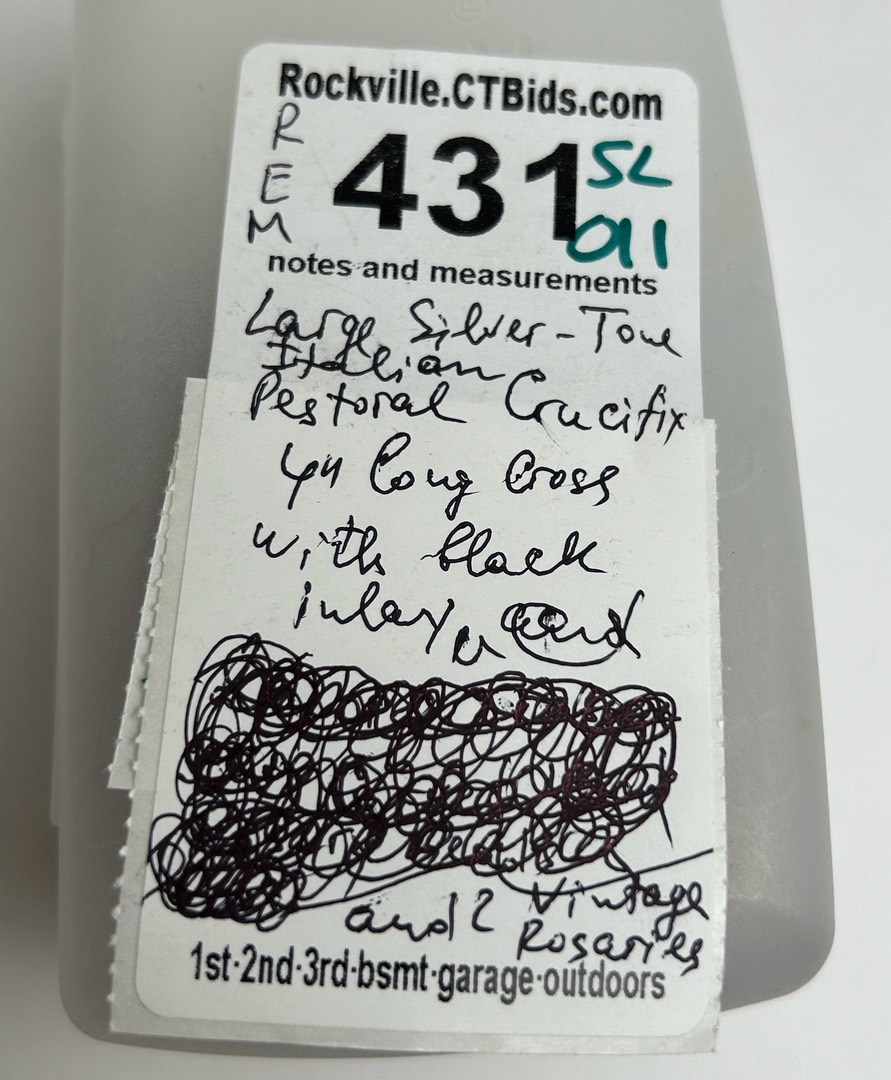 Rockville.CTBids.com
REM
431
SL
011
notes and measurements
Large Silver-Tone
Italian
Pestoral Crucifix
4" long Cross
with black
inlay, and
and 2 Vintage
Rosaries
1st·2nd·3rd-bsmt·garage·outdoors